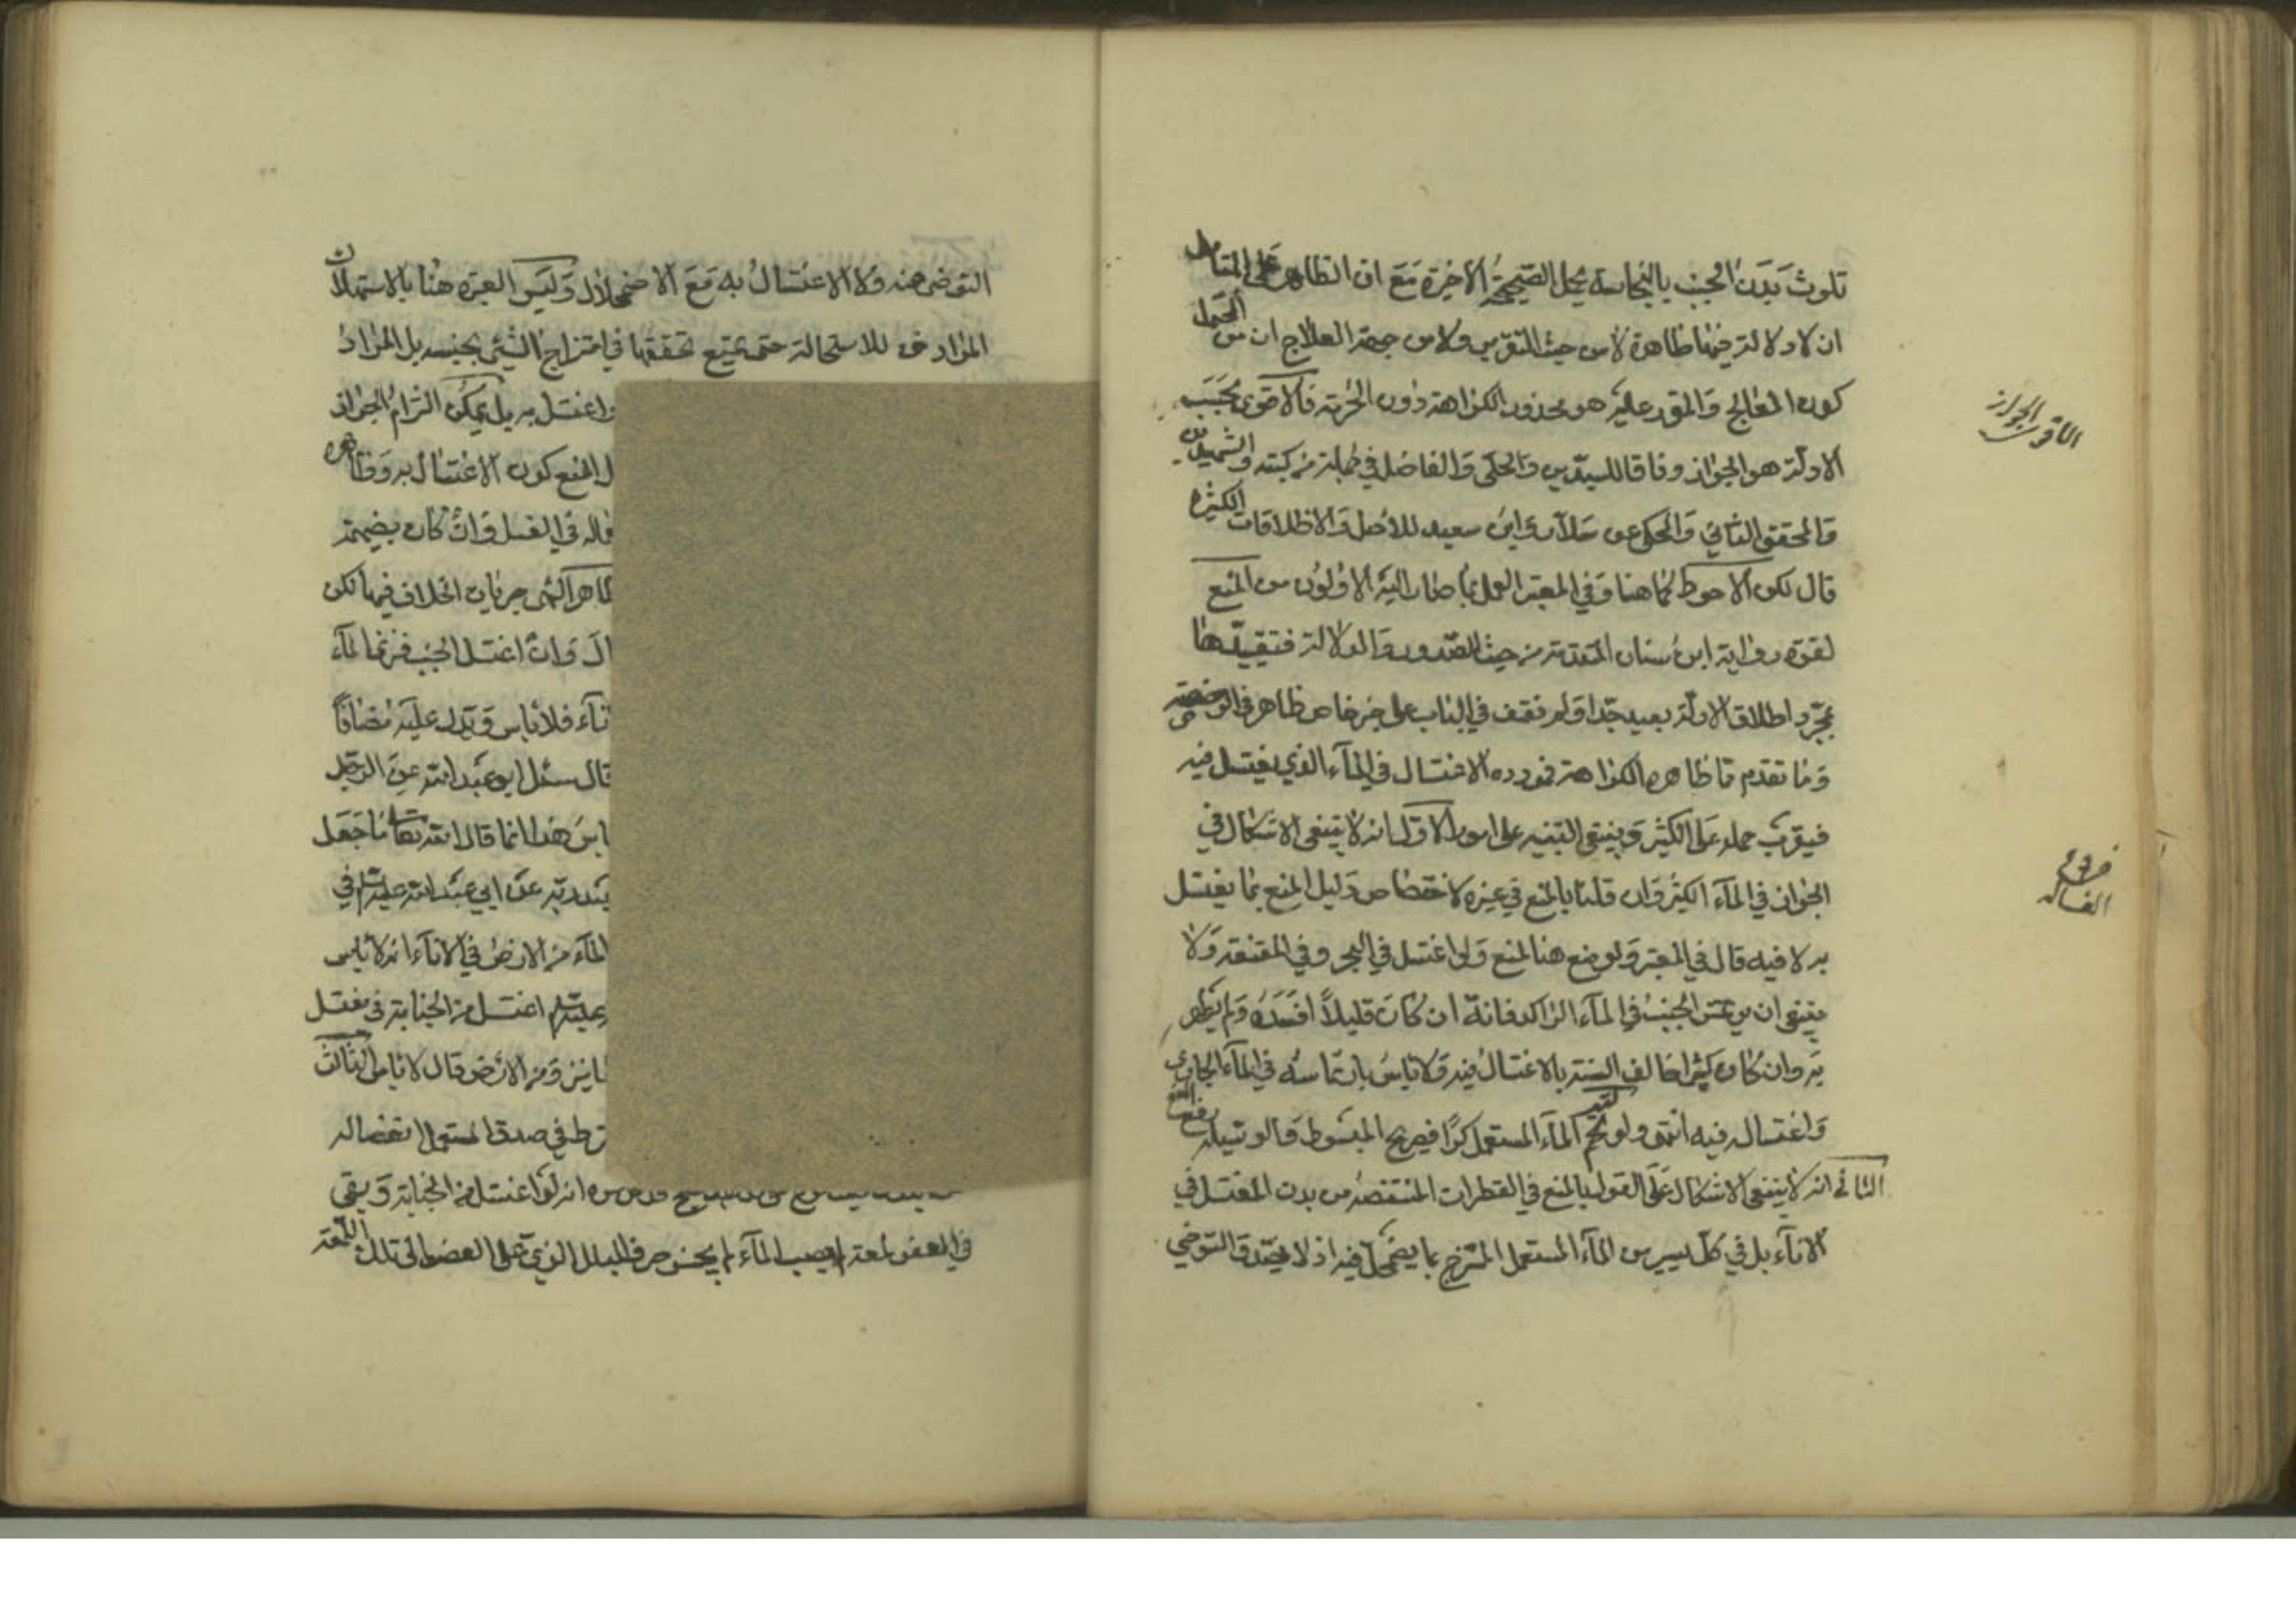 تلوث بدن الجنب بالنجاسة يحل الصحيحة الأخيرة مع ان الظاهر على المتامل
ان لا دلالة فيها ظاهرة لا من حيث التقرير ولا من جهة العلاج ان من المحتمل
كون المعالج والمقرر عليه هو محذور الكراهة دون الحرمة فالاقوى بحسب
الادلة هو الجواز وفاقا للسيدين والحلى والفاضل في جملة من كتبه والشهيدين
والمحقق الثاني والمحكى عن سلار وابن سعيد للاصل والاطلاقات الكثيرة
قال لكن الاحوط كما هنا وفي المعتبر العمل بما صار اليه الاولون من المنع
لقوة رواية ابن سنان المتقدمة من حيث الصدور والدلالة فتقييدها
بمجرد اطلاق الادلة بعيد جدا ولم نقف في الباب على خبر خاص ظاهر في الرخصة
وما تقدم مما ظاهره الكراهة فمورده الاغتسال في الماء الذي يغتسل فيه
فيقرب حمله على الكثير وينبغي التنبيه على امور الاول انه لا ينبغي الاشكال في
الجواز في الماء الكثير وان قلنا بالمنع في غيره لاختصاص دليل المنع بما يغتسل
به لا فيه قال في المعتبر ولو منع هنا لمنع ولو اغتسل في البحر وفي المقنعة ولا
ينبغي ان يرتمس الجنب في الماء الراكد فانه ان كان قليلاً افسده ولم يطهر
به وان كان كثيرا خالف السنة بالاغتسال فيه ولا باس بارتماسه في الماء الجاري
واغتساله فيه انتهى ولو تمم الماء المستعمل كرًا فصريح المبسوط والوسيلة رفع المنع
الثاني انه لا ينبغي الاشكال على القول بالمنع في القطرات المنتضحة من بدن المغتسل في
الاناء بل في كل يسير من الماء المستعمل الممتزج بما يضمحل فيه اذ لا يصدق التوضي
الاقوى الجواز
فروع الغسالة
التوضي منه ولا الاغتسال به مع الاضمحلال وليس العبرة هنا بالاستهلاك
المرادف للاستحالة حتى يمتنع تحققها في امتزاج الشيء بجنسه بل المراد
واغتسل به بل يمكن التزام الجواز
المنع كون الاغتسال به وظاهره
قاله في الغسل وان كان بضميمة
ظاهر النهى جريان الخلاف فيها لكن
وان اغتسل الجنب فنزا الماء
فلا باس ويدل عليه مضافاً
قال سئل ابو عبد الله عن الرجل
باس هذا انما قال الله تعالى ما جعل
عن ابي عبد الله عليه السلام في
الماء من الارض في الاناء انه لا باس
عليه السلام اغتسل من الجنابة في مغتسل
ومن الارض قال لا باس الثالث
في صدق المستعمل انفصاله
انه لو اغتسل من الجنابة وبقى
في العضو لمعة لم يصبها الماء لم يجز صرف البلل الذي على العضو الى تلك اللمعة